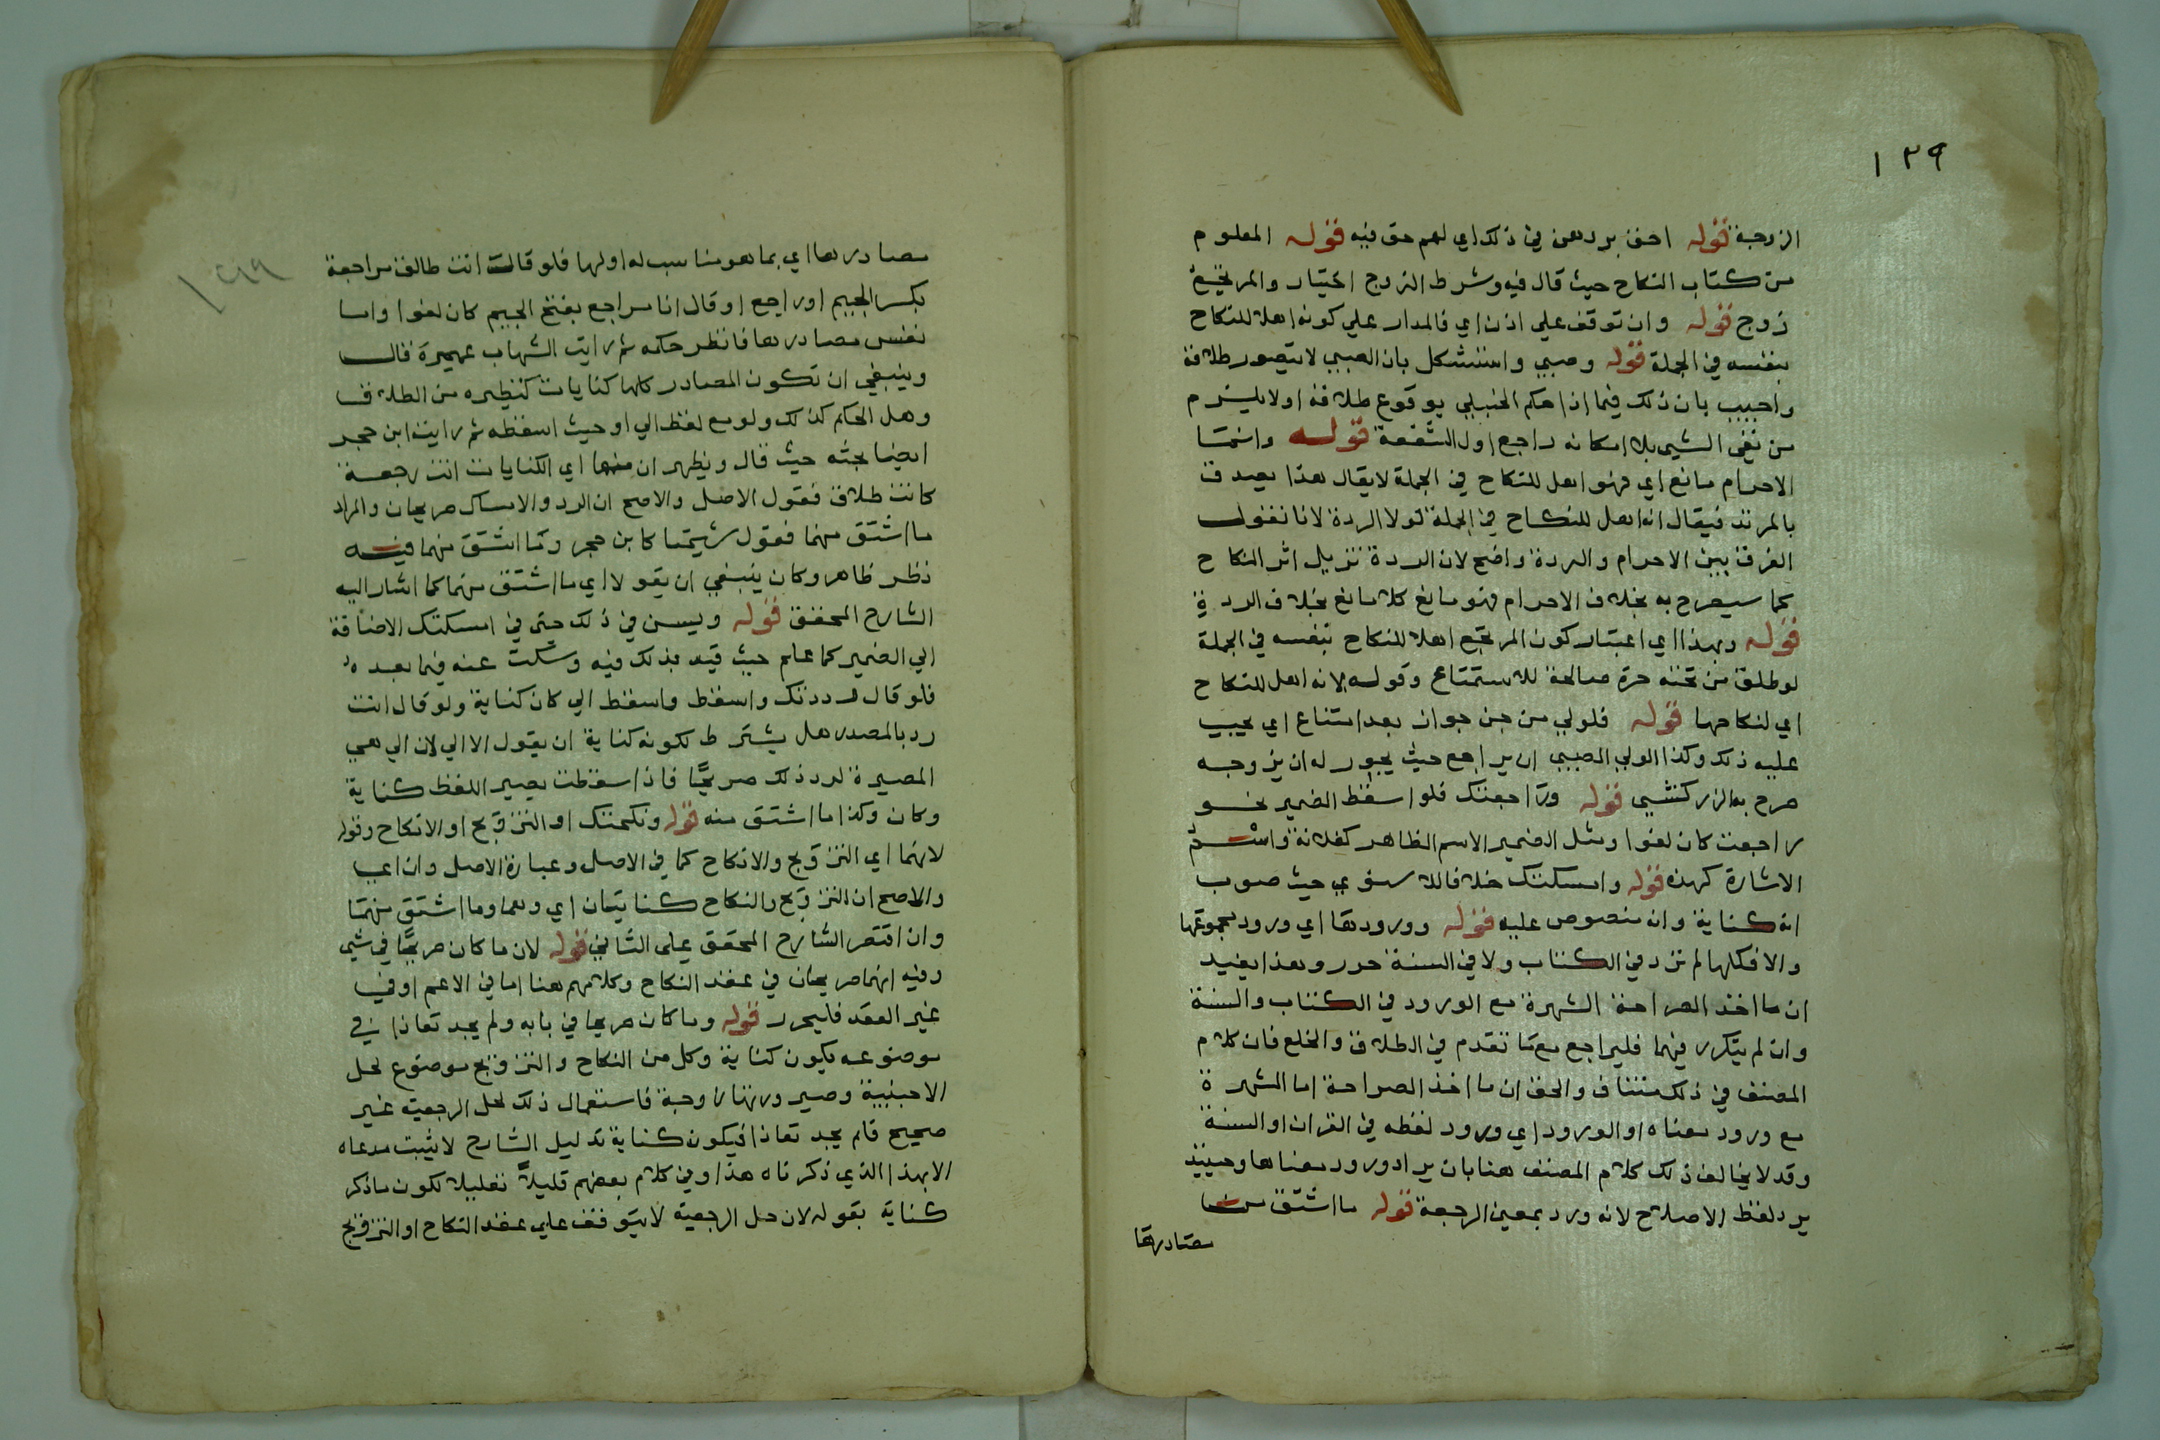 ١٣٩
الزوجة قوله احق بردهن في ذلك اي لهم حق فيه قوله المعلوم
من كتاب النكاح حيث قال فيه وشرط الزوج اختيار والمرتجع
زوج قوله وان توقف علي اذن اي فالمدار علي كونه اهلا للنكاح
بنفسه في الجملة قوله وصبي واستشكل بان الصبي لا يتصور طلاقه
واجيب بان ذلك فيما اذا حكم الحنبلي بوقوع طلاقه او لا يلزم
من نفي الشي بلا امكانه راجع اول الشفعة قوله وانما
الاحرام مانع اي فهو اهل للنكاح في الجملة لا يقال هذا يصدق
بالمرتد فيقال انه اهل للنكاح في الجملة لولا الردة لانا نقول
الفرق بين الاحرام والردة واضح لان الردة تزيل اثر النكاح
كما سيصرح به بخلاف الاحرام فهو مانع كلا مانع بخلاف الردة
قوله وبهذا اي اعتبار كون المرتجع اهلا للنكاح بنفسه في الجملة
لو طلق من تحته حرة صالحة للاستمتاع وقوله لانه اهل للنكاح
اي لنكاحها قوله فلولي من جن جواز بعد امتناع اي يجب
عليه ذلك وكذا الولي الصبي ان يراجع حيث يجوز له ان يزوجه
صرح به الزركشي قوله وراجعتك فلو اسقط الضمير نحو
راجعت كان لغوا ومثل الضمير الاسم الظاهر كفلانة واسم
الاشارة كهذه قوله وامسكتك خلافا للاسنوي حيث صوب
انه كناية وانه منصوص عليه قوله وورودها اي ورود مجموعها
والا فكلها لم ترد في الكتاب ولا في السنة حرر وهذا يفيد
ان ماخذ الصراحة الشهرة مع الورود في الكتاب والسنة
وان لم يتكرر فيهما فليراجع مع ما تقدم في الطلاق والخلع فان كلام
المصنف في ذلك متناف والحق ان ماخذ الصراحة اما الشهرة
مع ورود معناه او الورود اي ورود لفظه في القران او السنة
وقد لا يخالف ذلك كلام المصنف هنا بان يراد ورود معناها وحينئذ
يرد لفظ الاصلاح لانه ورد بمعني الرجعة قوله ما اشتق من
مصادرها
مصادرها اي بما هو مناسب له اولها فلو قالت انت طالق مراجعة
بكسر الجيم او راجع او قال انا مراجع بفتح الجيم كان لغوا واما
نفس مصادرها فانظر حكمه ثم رايت الشهاب عميرة قال
وينبغي ان تكون المصادر كلها كنايات كنظيره من الطلاق
وهل الحكم كذلك ولو مع لفظ الي او حيث اسقطه ثم رايت ابن حجر
ايضا بحثه حيث قال ويظهر ان منها اي الكنايات انت رجعة
كانت طلاق فقول الاصل والاصح ان الرد والامساك صريحان والمراد
ما اشتق منهما فقول شيخنا كابن حجر وما اشتق منهما فيه
نظر ظاهر وكان ينبغي ان يقولا اي ما اشتق منهما كما اشار اليه
الشارح المحقق قوله ويسن في ذلك حتي في امسكتك الاضافة
الي الضمير كما علم حيث قيد بذلك فيه وسكت عنه فيما بعده
فلو قال رددتك واسقط واسقط الي كان كناية ولو قال انت
رد بالمصدر هل يشترط لكونه كناية ان يقول الا الي لان الي هي
المصيرة لرد ذلك صريحا فاذا سقطت يصير اللفظ كناية
وكان وكذا ما اشتق منه قوله ونكحتك او التزويج او الانكاح وقوله
لانهما اي التزويج والانكاح كما في الاصل وعبارة الاصل وان اعي
والاصح ان التزويج والنكاح كنايتان اي وهما وما اشتق منهما
وان اقتصر الشارح المحقق علي الثاني قوله لان ما كان صريحا في شي
وفيه انهما صريحان في عقد النكاح وكلامهم هنا اما في الاعم او في
غير العقد فليحرر قوله وما كان صريحا في بابه ولم يجد نفاذا في
موضوعه يكون كناية وكل من النكاح والتزويج موضوع لحل
الاجنبية وصيرورتها زوجة فاستعمال ذلك لحل الرجعية غير
صحيح فلم يجد نفاذا فيكون كناية فدليل الشارح لا يثبت مدعاه
الا بهذا الذي ذكرناه هذا وفي كلام بعضهم قليلا تعليلا لكون ما ذكر
كناية بقوله لان حل الرجعية لا يتوقف علي عقد النكاح او التزويج